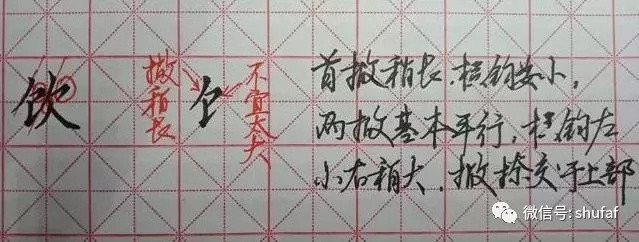 饮
撇稍长
饣
不宜太大
首撇稍长,横钩要小,
两撇基本平行,横钩左
小右稍大,撇捺交于上部
微信号: shufaf